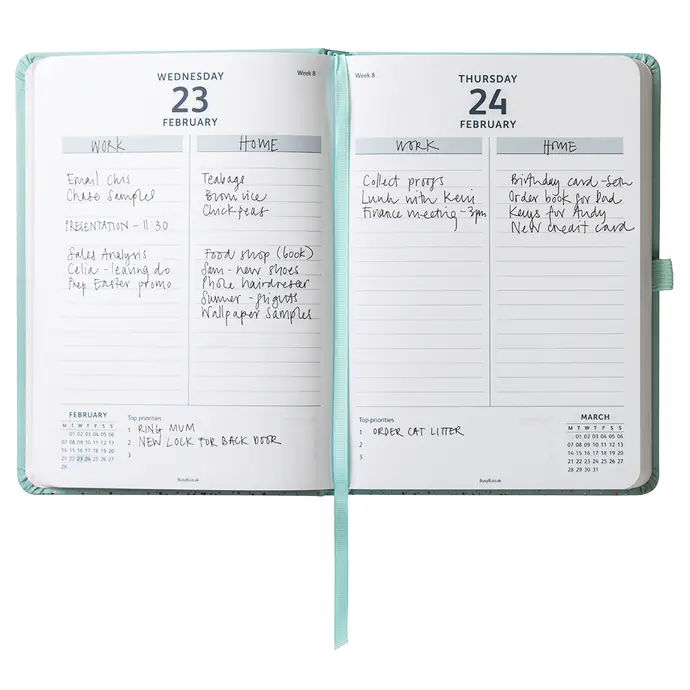 WEDNESDAY
23
FEBRUARY
Week 8
WORK
Email Chris
Chase samples
PRESENTATION - 11:30
Sales Analysis
Celia - leaving do
Prep Easter promo
HOME
Teabags
Chickpeas
Food shop (book)
Sam - new shoes
Phone hairdresser
Summer - flights
Wallpaper samples
FEBRUARY
M T W T F S S
01 02 03 04 05 06
07 08 09 10 11 12 13
14 15 16 17 18 19 20
21 22 23 24 25 26 27
28
Top priorities
1 RING MUM
2 NEW LOCK FOR BACK DOOR
3
BusyB.co.uk
Week 8
THURSDAY
24
FEBRUARY
WORK
Collect proofs
Lunch with Kerri
Finance meeting - 3pm
HOME
Birthday card - Seth
Order book for Dad
Keys for Andy
New credit card
Top priorities
1 ORDER CAT LITTER
2
3
MARCH
M T W T F S S
01 02 03 04 05 06
07 08 09 10 11 12 13
14 15 16 17 18 19 20
21 22 23 24 25 26 27
28 29 30 31
BusyB.co.uk